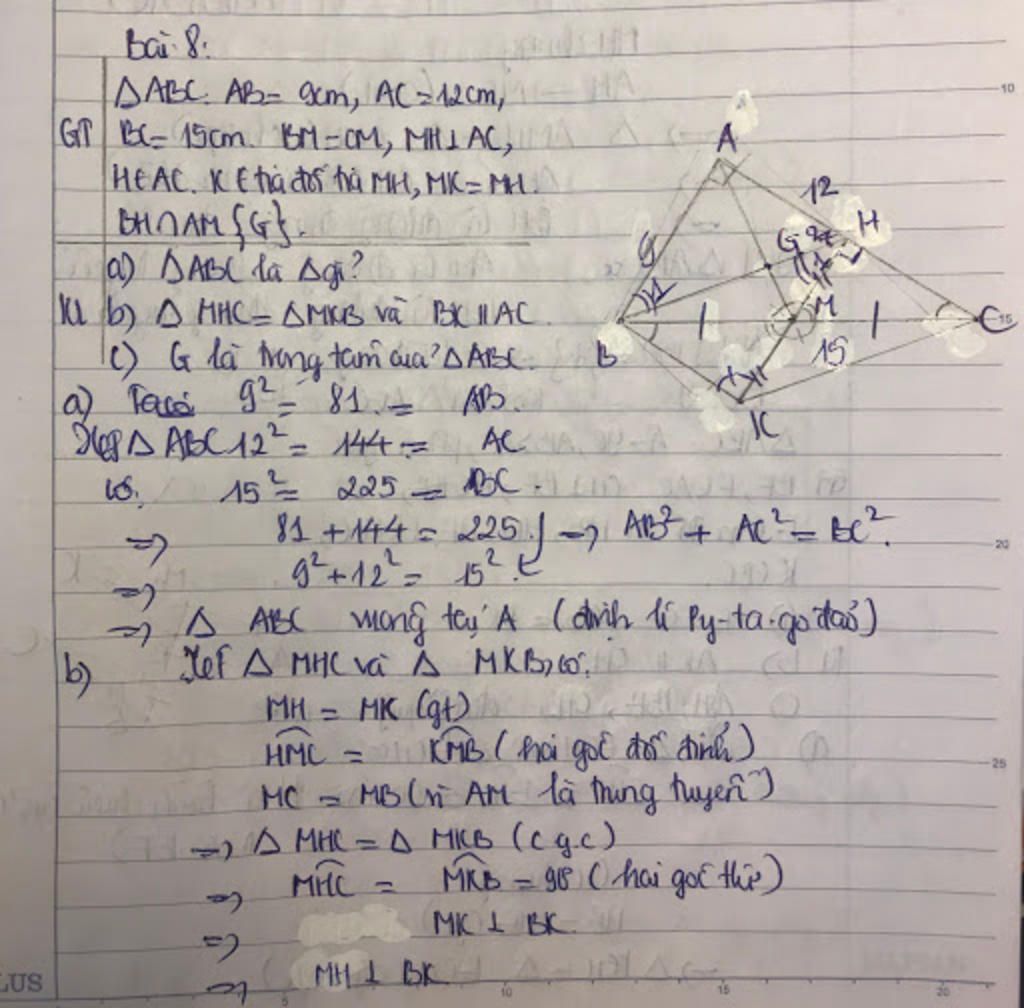 Bài 8:
ΔABC. AB = 9cm, AC = 12cm,
GT BC = 15cm. BM = CM, MH ⊥ AC,
H ∈ AC. K ∈ tia đối tia MH, MK = MH.
BH ∩ AM {G}.
a) ΔABC là Δgì?
KL b) Δ MHC = ΔMKB và BK // AC.
c) G là trọng tâm của ΔABC.
A
12
H
9
G
M
B
15
C
K
a) Ta có 9² = 81 = AB.
Xét Δ ABC 12² = 144 = AC
có. 15² = 225 = BC.
=> 81 + 144 = 225 } => AB² + AC² = BC².
=> 9² + 12² = 15².
=> Δ ABC vuông tại A (định lí Py-ta-go đảo)
b) Xét Δ MHC và Δ MKB, có:
MH = MK (gt)
HMC = KMB (hai góc đối đỉnh)
MC = MB (vì AM là trung tuyến)
=> Δ MHC = Δ MKB (c g.c)
=> MHC = MKB = 90 (hai góc t/ứ)
=> MK ⊥ BK.
=> MH ⊥ BK
LUS
5
10
15
20
10
15
20
25